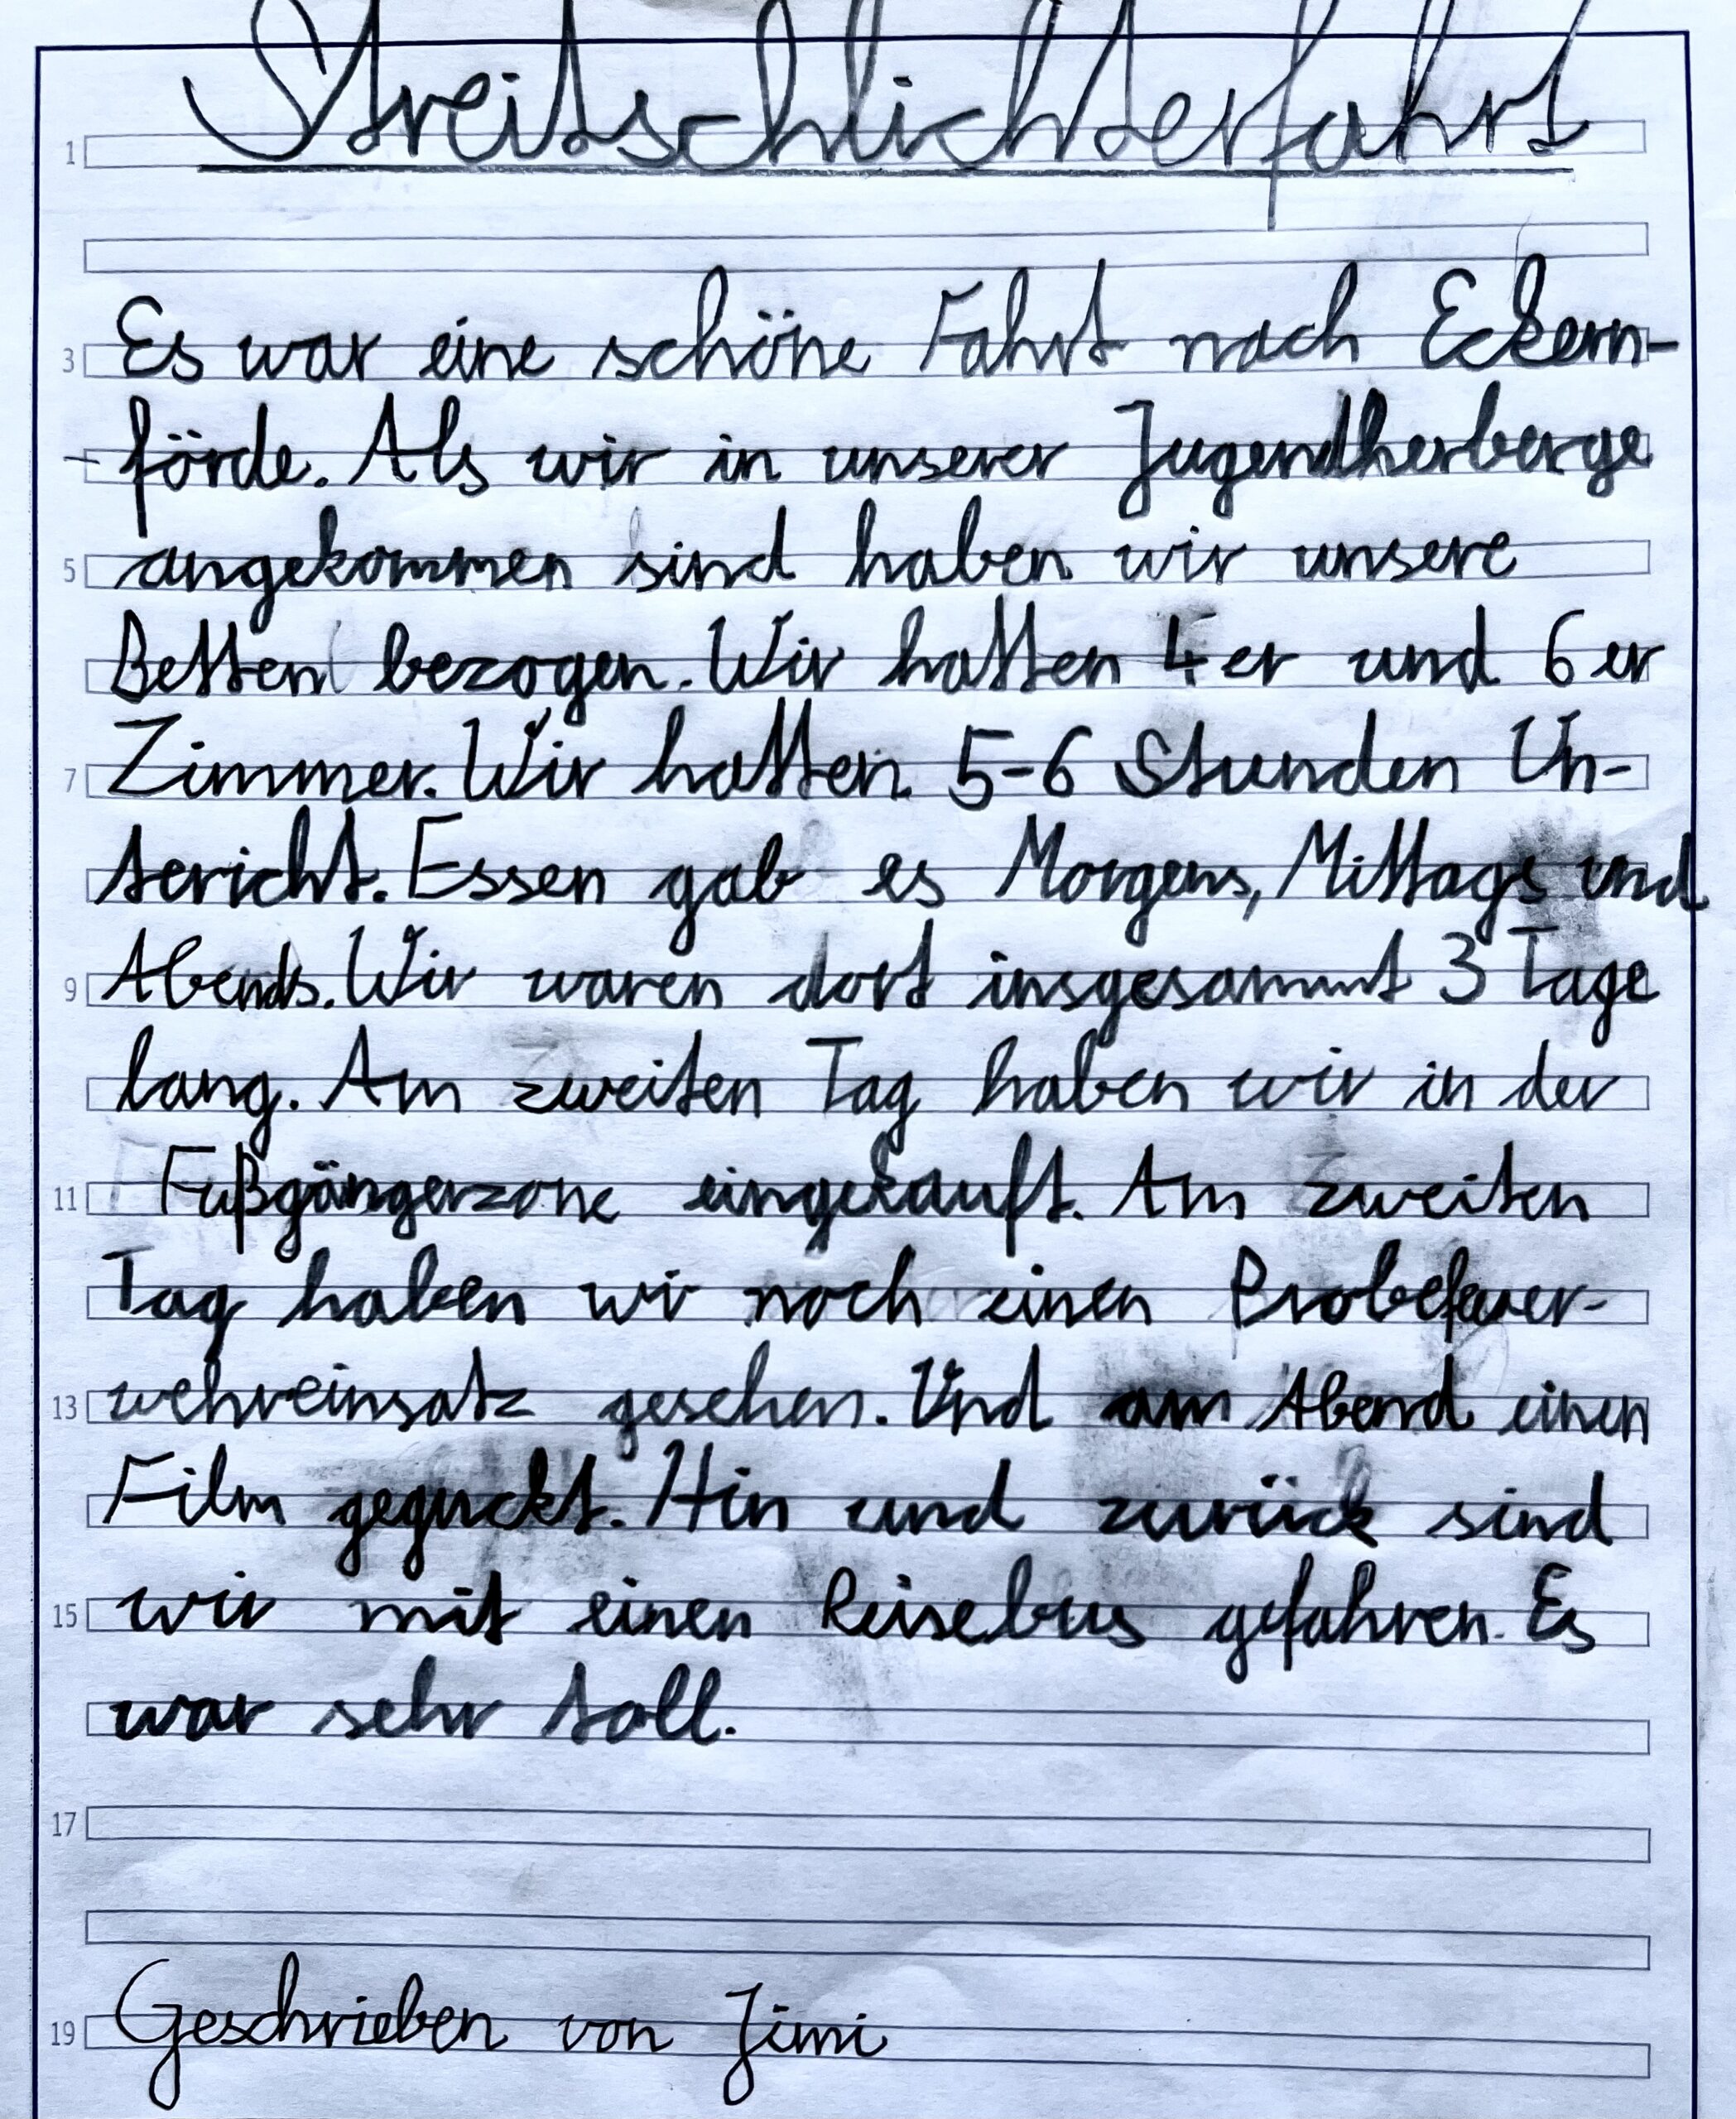 Streitschlichterfahrt
1
3 Es war eine schöne Fahrt nach Eckern-
- förde. Als wir in unserer Jugendherberge
5 angekommen sind haben wir unsere
Betten bezogen. Wir hatten 4er und 6er
7 Zimmer. Wir hatten 5-6 Stunden Un-
tericht. Essen gab es Morgens, Mittags und
9 Abends. Wir waren dort insgesammt 3 Tage
lang. Am zweiten Tag haben wir in der
11 Fußgängerzone eingekauft. Am zweiten
Tag haben wir noch einen Probefeuer-
13 wehreinsatz gesehen. Und am Abend einen
Film geguckt. Hin und zurück sind
15 wir mit einen Reisebus gefahren. Es
war sehr toll.
17
19 Geschrieben von Jimi